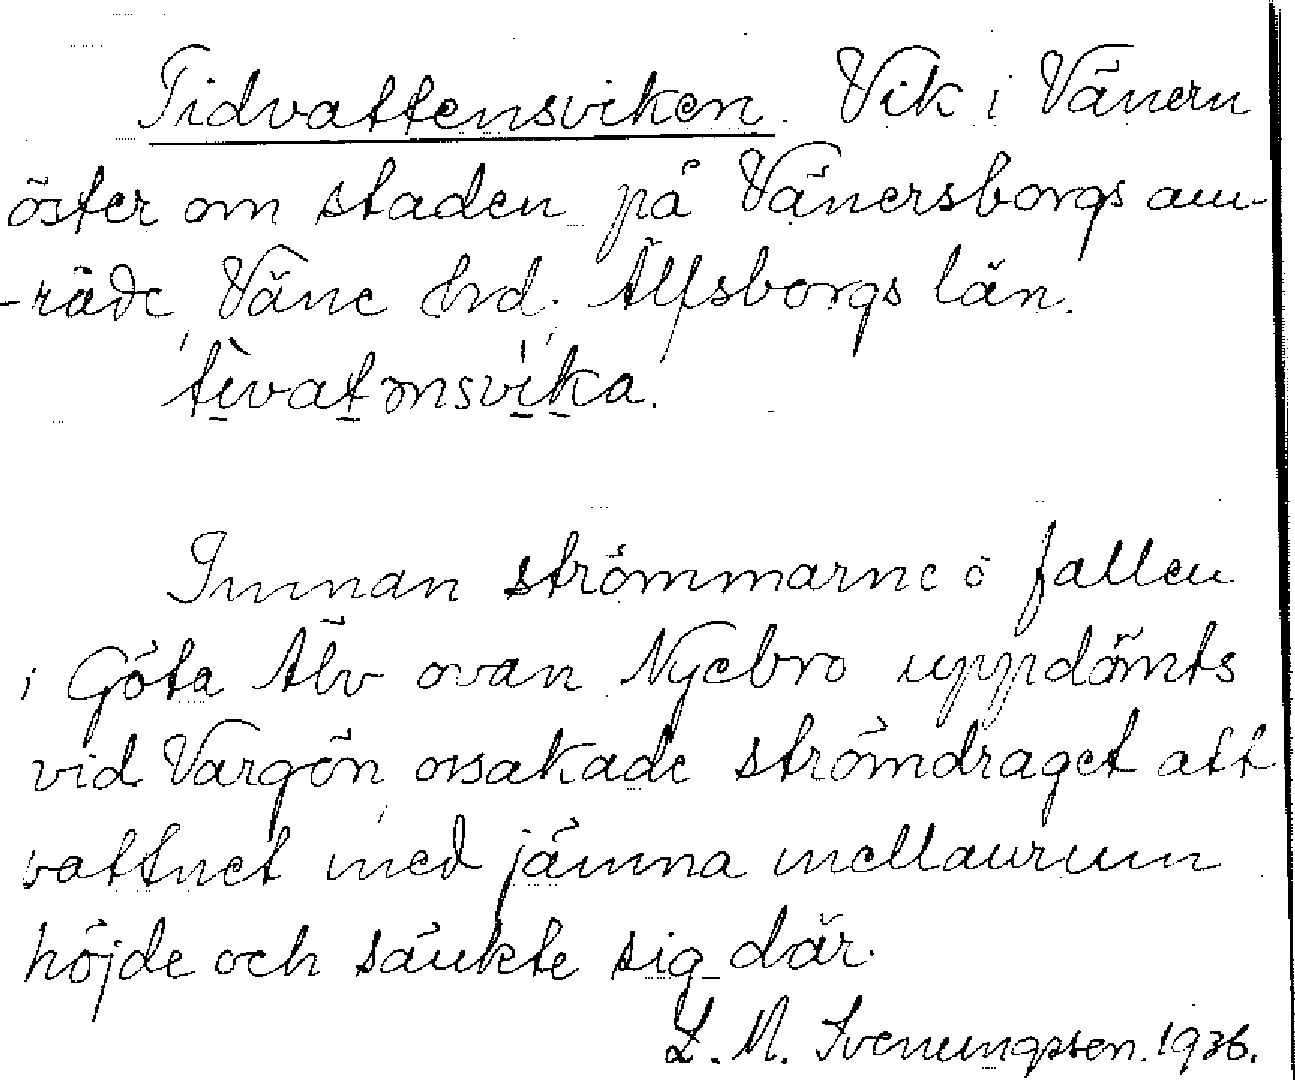 Tidvattensviken. Vik i Vänern
öster om staden på Vänersborgs om-
-råde, Väne hrd, Älfsborgs län.
tìvatənsvìka.
Innan strömmarne o fallen
i Göta Älv ovan Nyebro uppdömts
vid Vargön, orsakade strömdraget att
vattnet med jämna mellanrum
höjde och sänkte sig där.
L. M. Svenungsson. 1936.